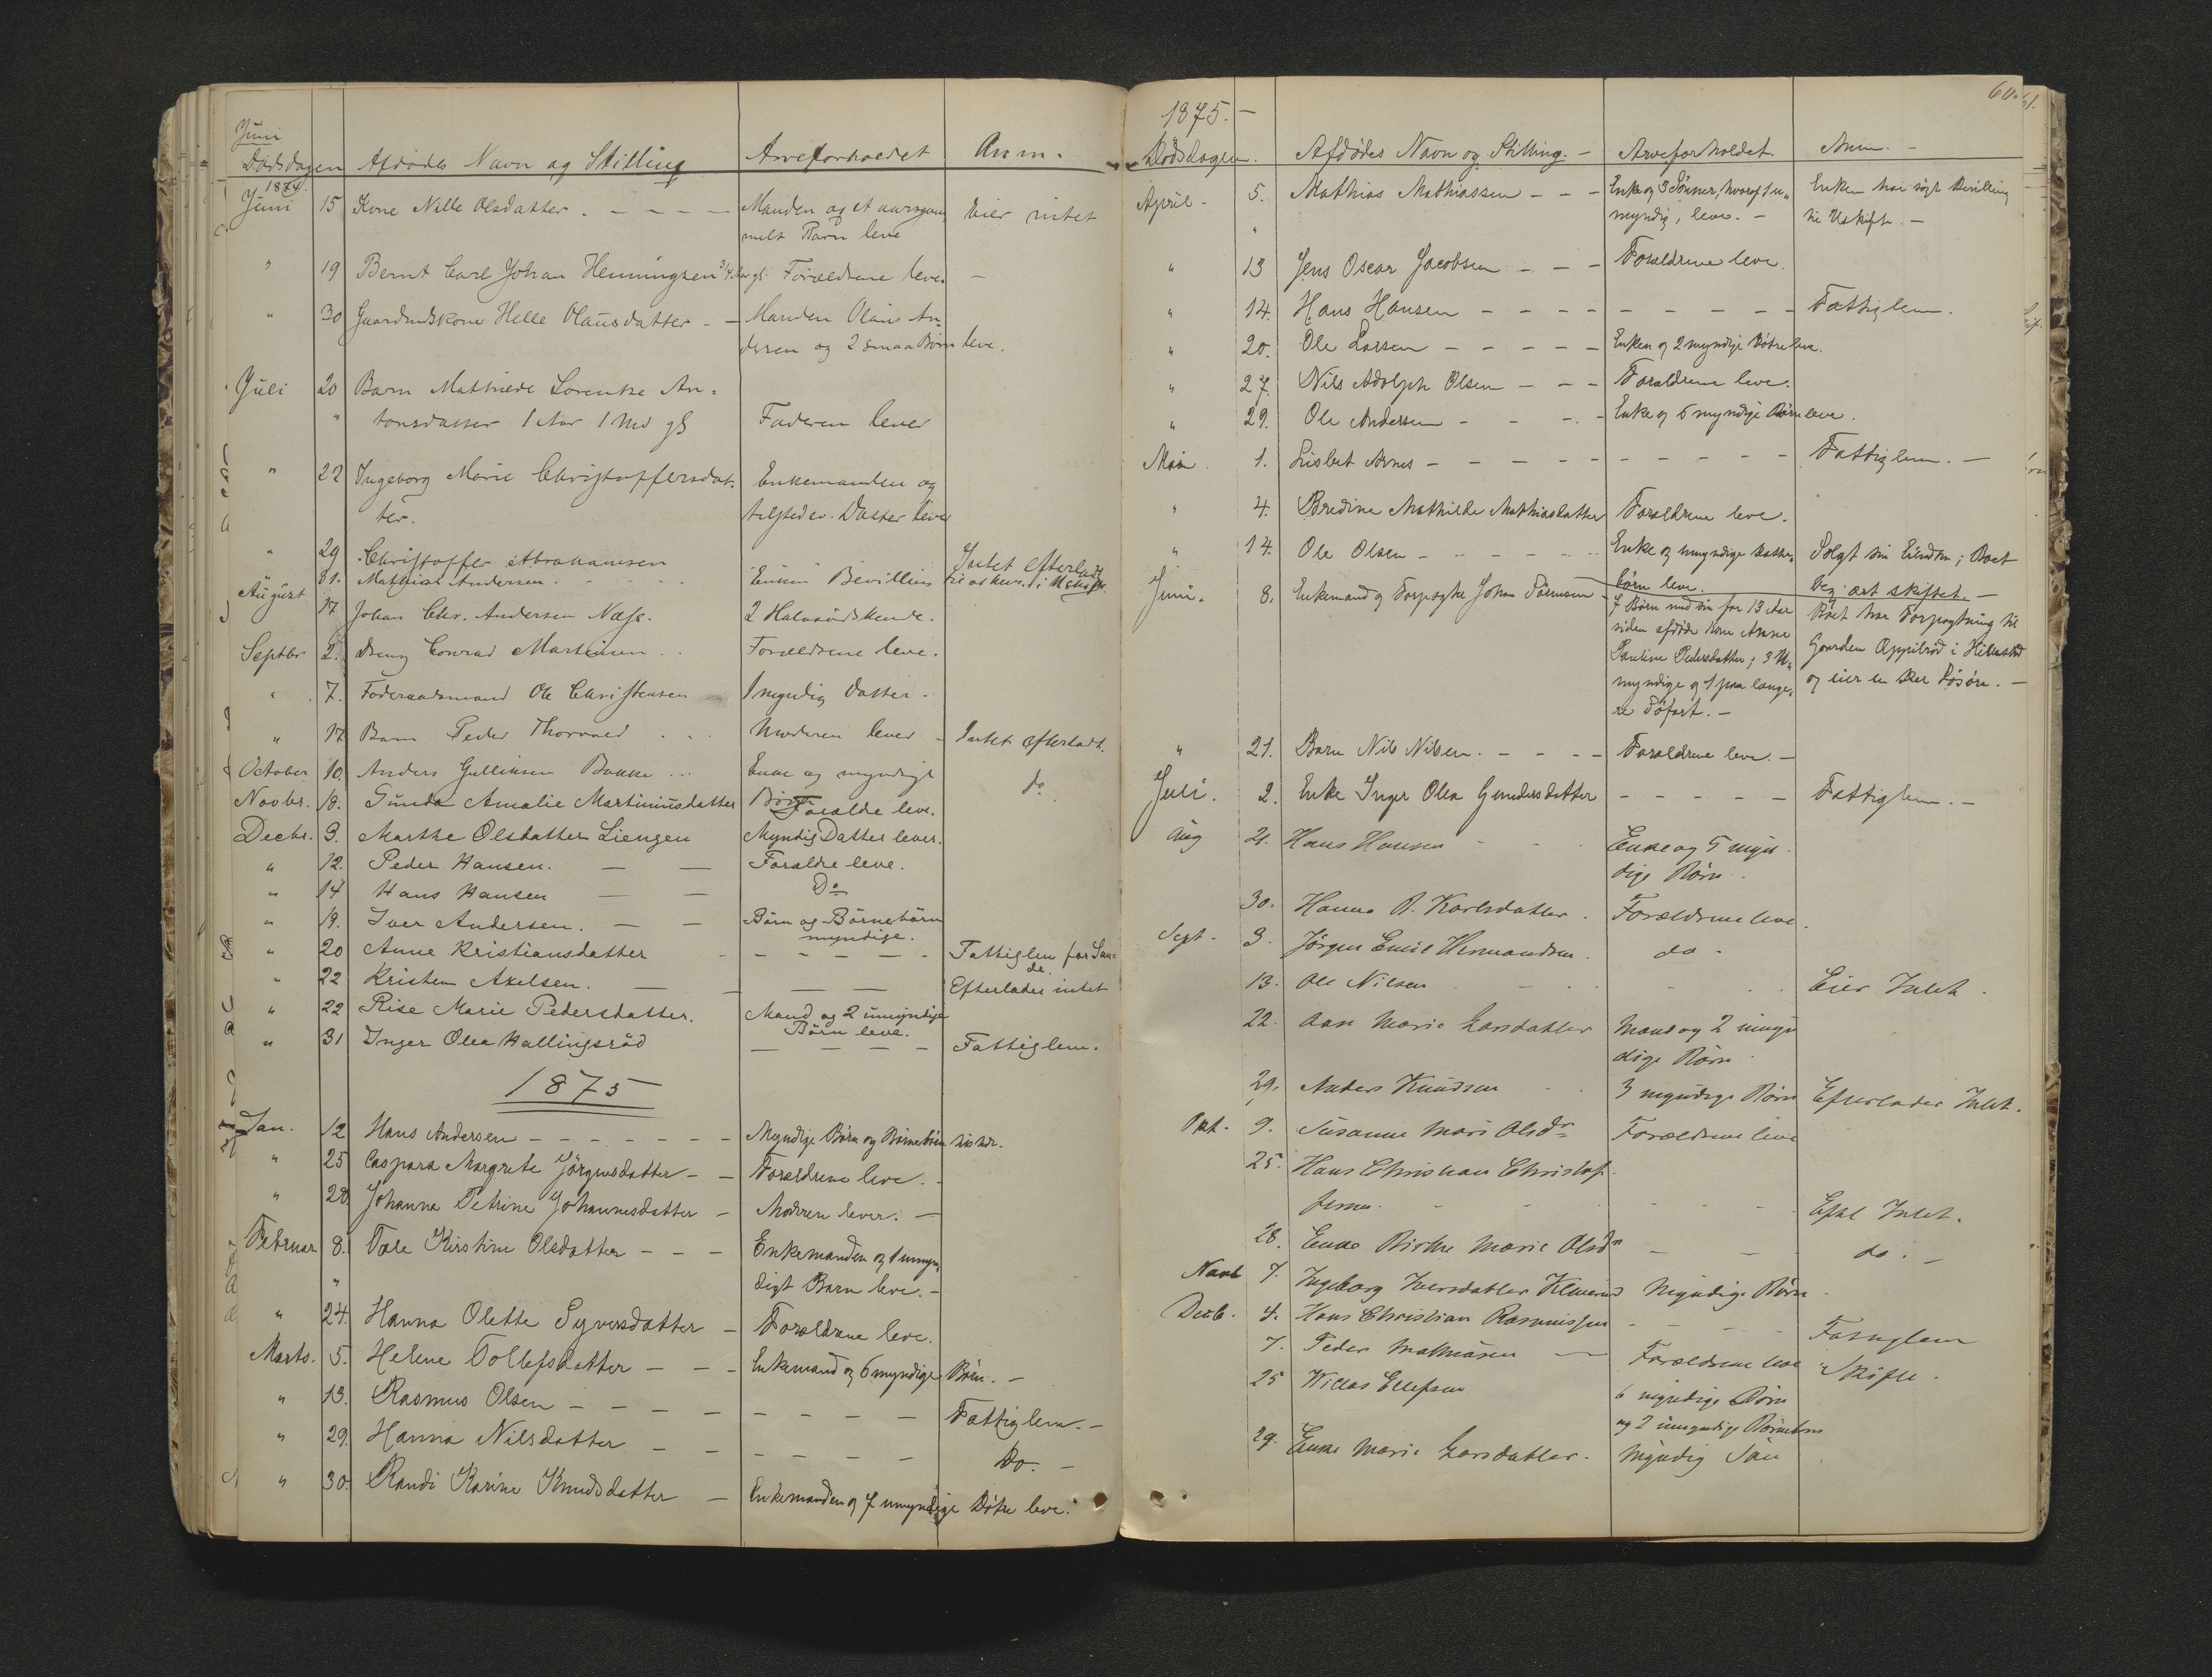 Juni
Dødsdagen Afdødes Navn og Stilling Arveforholdet Anm.
1874.
Juni 15 Kone Nille Olsdatter. - - - - Manden og et aargam- Eier intet
melt Barn leve
" 19 Bernt Carl Johan Henningsen 3/4 Aar gl. Forældrene leve. -
" 30 Gaardmdskone Helle Olausdatter - - Manden Olaus An-
dersen og 2 smaa Børn leve.
Juli 20 Barn Mathilde Lorentze An-
" tonsdatter 1 Aar 1 Md gl Faderen lever
" 22 Ingeborg Marie Christoffersdat- Enkemanden og
ter. Datter lever
" 29 Christoffer Abrahamsen Intet efterladt
31. Mathias Andersen Enken Bevilling til at hens. i Uskifte.
August 17 Johan Chr. Andersen Næss. 2 Halvsødskende.
Septbr 2. Dreng Conrad Martinsen .. Forældrene leve.
" 7. Føderaadsmand Ole Christensen 1 myndig Datter.
" 17. Barn Peder Thorvald ... Moderen lever - Intet efterladt.
October 10. Anders Gulliksen Bakke ... Enke og myndige do
Novbr. 18. Gunda Amalie Martiniusdatter Børn Forælde leve.
Decbr. 3. Marthe Olsdatter Liengen Myndig Datter lever.
" 12. Peder Hansen. — — Forældre leve.
" 14 Hans Hansen — — Do
" 19. Iver Andersen. — — Børn og Børnebørn
myndige.
" 20 Anne Kristiansdatter - - - - - - Fattiglem for San-
de.
" 22 Kristen Axelsen. — — — — Efterlader intet
" 22 Rise Marie Pedersdatter. Mand og 2 umyndige
Børn leve.
" 31 Inger Olea Hallingsrød — — — - Fattiglem.
1875
Jan. 12 Hans Andersen - - - - - - - Myndige Børn og Børnebørn
" 25 Caspara Margrete Jörgensdatter - - Forældrene leve. -
" 28. Johanna Petrine Johannesdatter - Moderen lever. —
Februar 8. Tale Kirstine Olsdatter - - - Enkemanden og 1 umyn-
" digt Barn leve. -
" 24. Hanna Olette Syversdatter - Forældrene leve.
Marts. 5. Helene Tollefsdatter - - - Enkemand og 6 myndige Børn. -
" 13. Rasmus Olsen - - - - - - - - Fattiglem. -
" 29. Hanna Nilsdatter - - - - - - Do. -
" 30. Randi Karine Knudsdatter - Enkemanden og 7 umyndige Døtre leve.
60. 61.
1875. -
Dødsdagen. Afdødes Navn og Stilling. - Arveforholdet Anm. -
April - 5. Mathias Mathiassen - - - Enke og 3 Sønner, hvoraf 1 u- Enken har søgt Bevilling
" myndig, leve. - til Uskifte. -
" 13 Jens Oscar Jacobsen - - - Forældrene leve.
" 14. Hans Hansen - - - - - - - - - Fattiglem.
" 20. Ole Larsen - - - - - Enken og 2 myndige Døtre leve.
" 27. Nils Adolph Olsen - - - Forældrene leve.
" 29. Ole Andersen - - - - Enke og 5 myndige Børn leve.
Mai. 1. Lisbet Arnes - - - - - - - - - - Fattiglem. -
" 4. Bredine Mathilde Mathiasdatter Forældrene leve.
" 14. Ole Olsen - - - - - Enke og umyndige Datter- Solgt sin Eiendom; Boet
børn leve. beg: ært skiftet. -
Juni. 8. Enkemand og Forpagter Johan Sørensen - 7 Børn med sin for 13 Aar Boet har Forpagtning til
siden afdøde Kone Anne Gaarden Appilrød i Hillestad
Pauline Pedersdatter; 3 U- og eier en Del Løsøre. -
myndige og 1 paa længe-
re Søfart. -
" 21. Barn Nils Nilsen. - - - - Forældrene leve. -
Juli. 2. Enke Inger Olea Gundersdatter - - - - - Fattiglem. -
Aug 21. Hans Hansen - - Enke og 5 myn-
dige Børn.
30. Hanna B. Karlsdatter. Forældrene leve.
Sept - 3. Jörgen Emil Hermandsen. do -
13. Ole Nilsen - - - - Eier Intet.
22. Ann Marie Larsdatter Mand og 2 umyn
dige Børn.
29. Anders Knudsen - 3 myndige Børn Efterlader Intet.
Okt - 9. Susanne Mari Olsdr Forældrene leve
25. Hans Christian Christof-
fersen. - - - - - Eftl Intet.
28. Enke Birthe Marie Olsdr — — do. -
Novb 7. Ingeborg Iversdatter Myndige Børn.
Decb. 4. Hans Christian Rasmussen - - - - Fattiglem
7. Peder Mathiasen — Forældrene leve
25 Willas Ellefsen 6 myndige Børn Skifte.
og 2 umyndige Børnebørn
29. Enke Marie Larsdatter. Myndig Søn